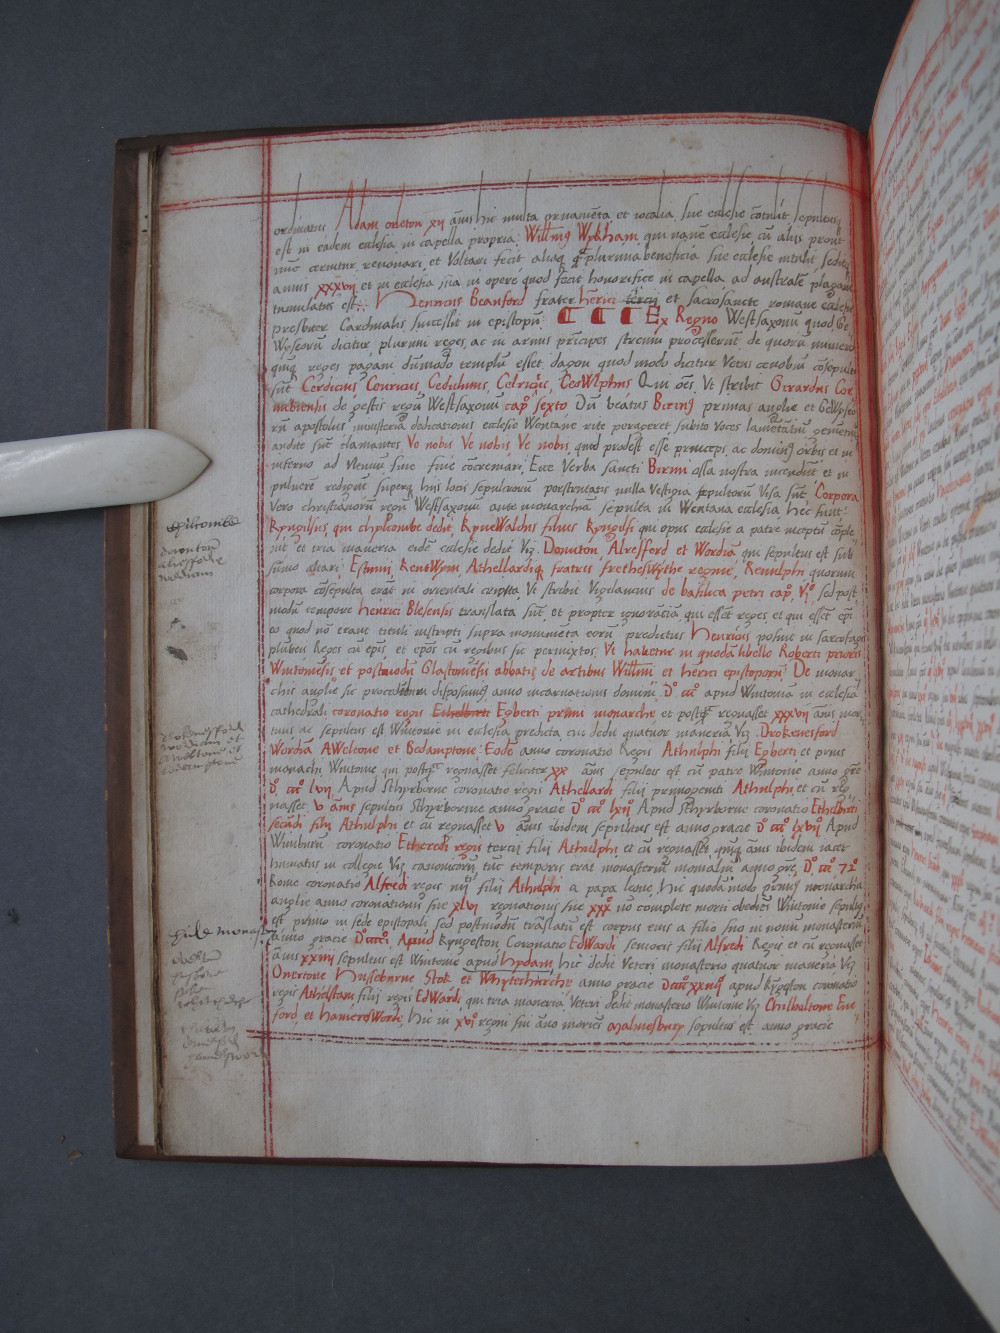 ordinatus Adam orleton xij ānis hic multa ornamēta et iocalia sue ecclesie cōtulit sepultus
est in eadem ecclesia in capella propria. Willmꝰ Wykham qui nauē ecclesie cū aliis prout
nūc cernitur renouari et Voltari fecit aliaq plurima beneficia sue ecclesie intulit sedit
annis xxxvij et in ecclesia sua in opere quod fecit honorifice in capella ad australē plagam
tumulatus est. Henricus Beauford frater henrici tercii et sacrosancte romane ecclesie
presbiter Cardinalis successit in episcopū. Ex Regno Westsaxonū quod Ge
Wyseorū dicitur, plurimi reges, ac in armis principes strenui processerūt de quorū numero
quinq reges pagani dūmodo templū esset dagon quod modo dicitur Vetus cenobiū cōsepulti
sūt Cerdicius, Cenricus, Cedulinus, Celricius, CeoWlphus Qui oēs, Vt scribit Girardus Cor
nubiensis de gestis regū Westsaxonū cap sexto. Dū beatus Birinꝰ primas anglie et GeWyseo
rū apostolus misteria dedicationis ecclesie Wentane rite perageret subito voces lamētātiū gemētiū
audite sūt clamantes Ve nobis Ve nobis, Ve nobis, quid prodest esse principes, ac dominos orbis et in
inferno ad plenum sine fine cōcremari. Ecce Verba sancti Birini ossa nostra incendūt et in
puluerē redigūt superq hiis locis sepulcrorū porstratis nulla Vestigia sepultorū Visa sūt. Corpora
Vero christianorū regū Westsaxonū ante monarchā sepulta in Wentana ecclesia hec sunt.
Kyngilsus, qui chylcombe dedit, KyneWalchus filius Kyngilsi qui opus ecclesie a patre inceptū cōple
uit et tria maneria eidē ecclesie dedit Viz. Dountoū Alresford et Wordiā qui sepultus est sub
sūmo altari, Escuini KenteWyni, Athellardiq fratris fretheswythe regine, Kenulphi quorum
corpora cōsepulta erāt in orientali cripta Vt scribit Vigelancius de basilica petri cap. Vjo sed post
modū tempore henrici Blesensis translata sūt, et propter ignorāciā qui essēt reges, et qui essēt epi
eo quod nō erant tituli inscripti supra monumēta eorū predictus henricus posuit in sarcofagis
plubeis Reges cū epis, et epos cū regibus sic permixtos, Vt habetur in quodā libello Roberti prioris
Wintoniēsis et postmodū Glastoniēsis abbatis de actibus Willmi et henrici episcoporū. De monar
chiis anglie sic procedēdū disposuimꝰ anno incarnationis dominicꝫ apud Wintoniā in ecclesia
cathedrali coronatio regis Ethelbirti Egberti primi monarche et postq regnasset xxxvij ānis mor
tuus ac sepultus est Wintonie in ecclesia predicta cui dedit quatuor maneria Viz. Drokenesford
Wordiā AWeltone et Bedamptone. Eodē anno coronatio Regis Athulphi filij Egberti et prius
monachi Wintonie qui postq regnasset feliciter xx ānis sepultus est cū patre Wintonie anno gre
Apud Sthyrborne coronatio regis Athellardi filij primogeniti Athulphi et cū reg
nasset v ānis sepultus Sthyrborne anno gracie Apud Sthyrborne coronatio Ethelbirti
secūdi filij Athulphi et cū regnasset v ānis ibidem sepultus est anno gracie Apud
Winburn coronatio Etheredi regis tercij filij Athulphi et cū regnasset quinq ānis ibidem iacet
humatus in collegio Viz canonicorū tūc temporis erat monasteriū monialiū anno gre
Rome coronatio Alfredi regis iiij filij Athulphi a papa leone, hic quodāmodo primꝰ monarcha
anglie anno coronationis sue xlvj regnationis sue xxx nō complete morti obediēs Wintonie sepultꝰ
est primo in sede episcopali sed postmodū trāslatū est corpus eius a filio suo in nouū monasteriū
anno gracie Apud Kyngeston Coronatio EdWardi senioris filij Alfredi Regis et cū regnasset
ānis xxiiij sepultus est Wintonie apud hydam, hic dedit Veteri monasterio quatuor maneria Viz
Ouertone Husseburne Stok et Whytchirche anno gracie apud Kyngeston coronatio
regis Athelstani filij regis EdWardi, qui tria maneria Veteri dedit monasterio Wintonie Viz Chilbaltone Eue
ford, et hameresWorde, hic in xvjo regni sui āno moriēs malmesbury sepultus est anno gracie
chilcombe
dounton
alresforde
wordium
drokenesford
wordiam et
aweltone et
bedamptone
hide monastery